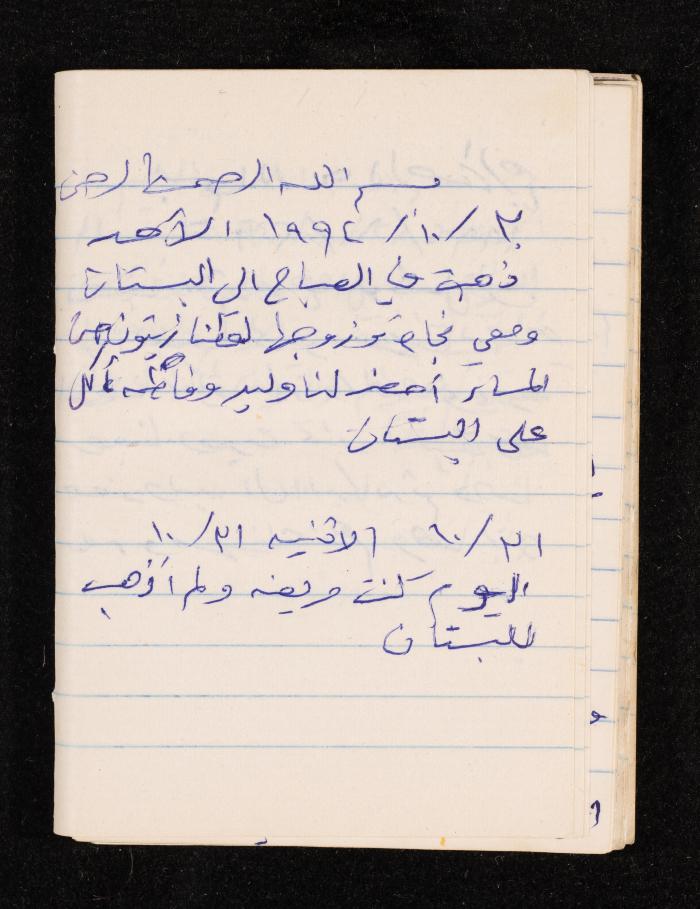 بسم الله الرحمن الرحيم
٣٠/١٠/١٩٩٤ الأحد
ذهبت في الصباح الى البستان
ومعي نجاة وزوجها لقطنا زيتون
المساء أحضر لنا وليد وفاطمه
على البستان
٣١/١٠ الاثنين ٣١/١٠
اليوم كنت مريضه ولم أذهب
للبستان